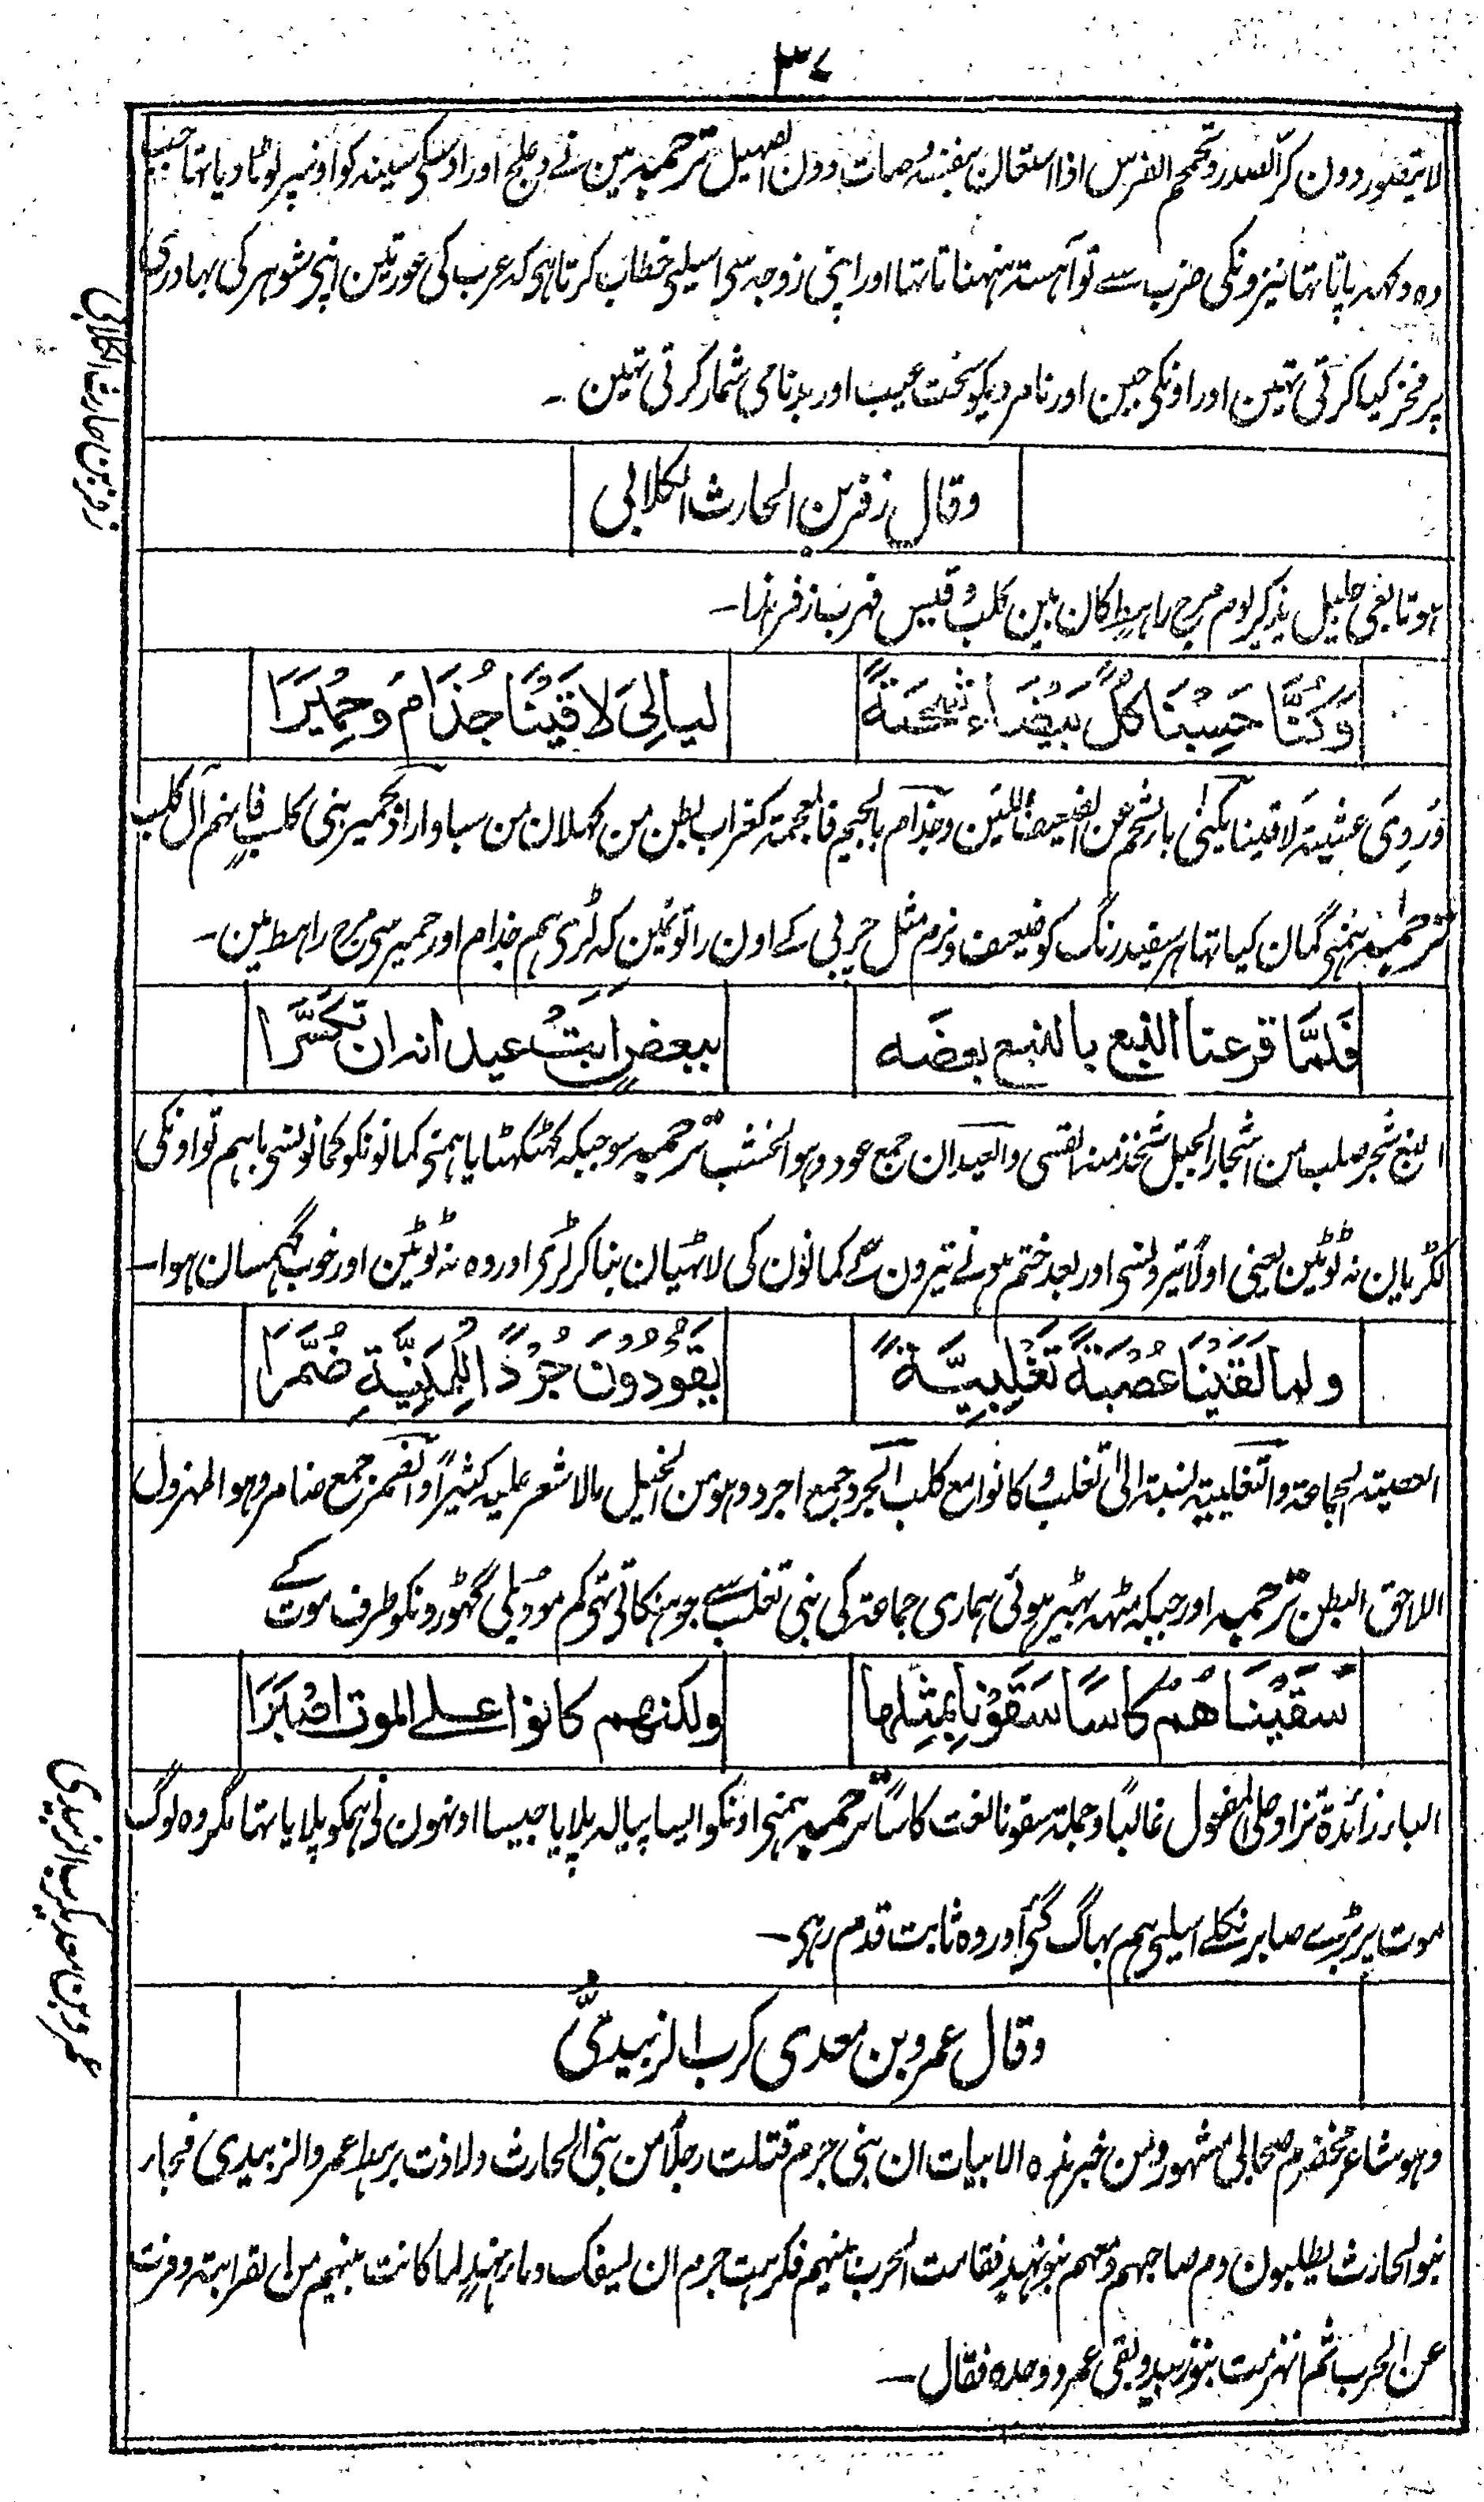 ٣٧
لا یتصور دون کر الصدر وتحمحم الفرس اذا استعان بنفسہ وصات دون الصہیل ترجمہ مین نے دعلج اور اوسکی سینہ کو اونپر لوٹا دیا تہا جب
وہ دکہہ پاتا تہا نیزونکی ضرب سے تو آہستہ ہنہناتا تہا اور اپنی زوجہ سی اسیلی خطاب کرتا ہی کہ عرب کی عورتین اپنی شوہر کی بہادری
پر فخر کیا کرتی تہین اور اونکی جبن اور نامردیکو سخت عیب اور بدنامی شمار کرتی تہین ۔
وقال زفر بن الحارث الکلابی
زفر بن حارث الکلابی
ہو تابعی جلیل یذکر یوم مرج راہط کان بین کلب وقیس فہرب زفر ہذا۔
وَكُنَّا حَسِبْنَا كُلَّ بَيْضَاءَ شَحْمَةً
لیالِیَ لَاقَيْنَا جُذَامَ وَحِمْيَرَا
ورُوِیَ عشیۃ لاقینا یکنٰی بالشحم عن الضعیف اللین وجذام بالجیم فالمعجمۃ کغراب بطن من کہلان من سبا واراد بحمیر بنی کلب فانہم آل کلب
ترجمہ ہمنی گمان کیا تہا ہر سفید رنگ کو ضعیف ونرم مثل چربی کے اون راتونمین کہ لڑی ہم جذام اور حمیر سی مرج راہط مین۔
فَلَمَّا قرعنا النبع بالنبع بعضَہ
ببعضٍ ابَتْ عیدانہ ان تکَسَّرَا
النبع شجر صلب من اشجار الجبل تتخذ منہ القسی والعیدان جمع عود وہو الخشب ترجمہ سو جبکہ کہٹکہٹایا ہمنی کمانونکو کمانونسی باہم تو اونکی
لکڑیان نہ ٹوٹین یعنی اولاً تیرونسی اور بعد ختم ہونے تیرون کے کمانون کی لاٹہیان بناکر لڑی اور وہ نہ ٹوٹین اور خوب گہمسان ہوا۔
ولما لَقَيْنَا عُصْبَةً تَغْلِبِيَّةً
يَقُودُونَ جُرْدًا لِلْمَنِيَّةِ ضُمَّرَا
العصبۃ الجماعۃ والتغلبیۃ نسبۃ الی تغلب وکانوا مع کلب الجرد جمع اجرد وہو من الخیل مالا شعر علیہ کثیراً والضمر جمع ضامر وہو المہزول
اللاحق البطن ترجمہ اور جبکہ مٹہہ بہیڑ ہوئی ہماری جماعۃ کی بنی تغلب سے جو ہنکاتی تہی کم مو دبلی گہوڑونکو طرف موت کے
سَقَيْنَاهُمْ كَاسًا سَقَوْنَا بِمِثْلِها
ولکنھم کانوا علی الموت اصْبَرَا
الباء زائدۃ تزاد علی المفعول غالباً وجملۃ سقونا نعت کاساً ترجمہ ہمنی اونکو ایسا پیالہ پلایا جیسا اونہون نی ہمکو پلایا تہا مگر وہ لوگ
موت پر بڑے صابر نکلے اسیلی ہم بہاگ گئی اور وہ ثابت قدم رہی۔
وقال عمرو بن معدی کرب الزبیدیّ
عمرو بن معدیکرب الزبیدی
وہو شاعر مخضرم صحابی مشہور ومن خبر ہذہ الابیات ان بنی جرم قتلت رجلاً من بنی الحارث ولاذت برہط عمرو الزبیدی فجاء
بنو الحارث یطلبون دم صاحبہم ومعہم بنو نہد فقامت الحرب بینہم فکرہت جرم ان یسفک دماء نہدٍ لما کانت بینہم من القرابۃ وفرت
عن الحرب ثم انہزمت بنو زبید وبقی عمرو وحدہ فقال۔